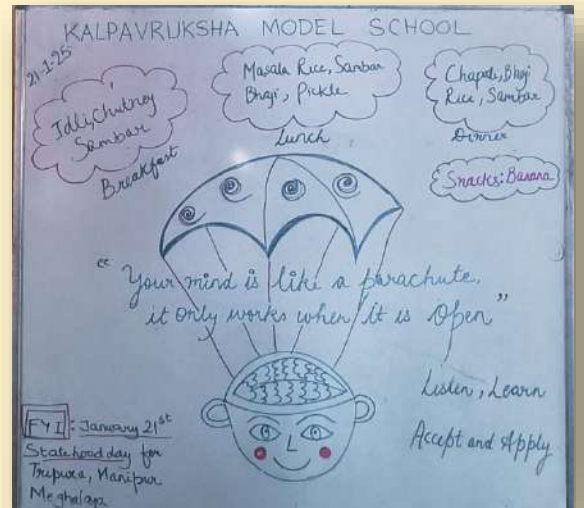 KALPAVRUKSHA MODEL SCHOOL
21-1-25
Idli, Chutney
Sambar
Breakfast
Masala Rice, Sambar
Bhaji, Pickle
Lunch
Chapati, Bhaji
Rice, Sambar
Dinner
Snacks: Banana
"Your mind is like a parachute,
it only works when it is Open"
Listen, Learn
Accept and Apply
FYI: January 21st
Statehood day for
Tripura, Manipur
Meghalaya